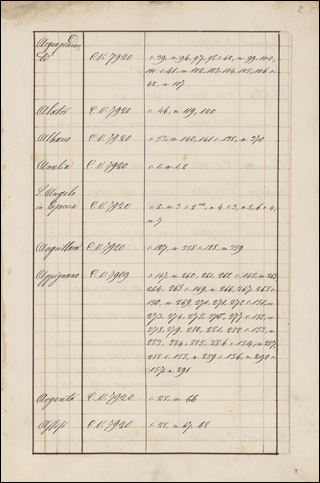 2
Acquapenden
te C.V. 7920 c. 39, n. 96, 97, 98 c. 40, n. 99, 100,
101 c. 41, n. 102, 103, 104, 105, 106 c.
42, n. 107
Alatri C.V. 7920 c. 46, n. 119, 120
Albano C.V. 7920 c. 53, n. 140, 141 c. 138, n. 370
Amelia C.V. 7920 c. 1, n. 1, 2
S. Angelo
in Capoccia C.V. 7920 n. 4 c. 3, n. 5, 6 c. 4,
n. 7
Anguillara C.V. 7920 c. 127, n. 338 c. 128, n. 339
Appignano C.V. 7909 c. 147, n. 260, 261, 262 c. 148, n. 263,
264, 265 c. 149, n. 266, 267, 268 c.
150, n. 269, 270, 271, 272 c. 151, n.
273, 274, 275, 276, 277 c. 152, n.
278, 279, 280, 281, 282 c. 153, n.
283, 284, 285, 286 c. 154, n. 287,
288 c. 155, n. 289 c. 156, n. 290 c.
157, n. 291
Argenta C.V. 7920 c. 28, n. 66
Assisi C.V. 7920 c. 28, n. 67, 68